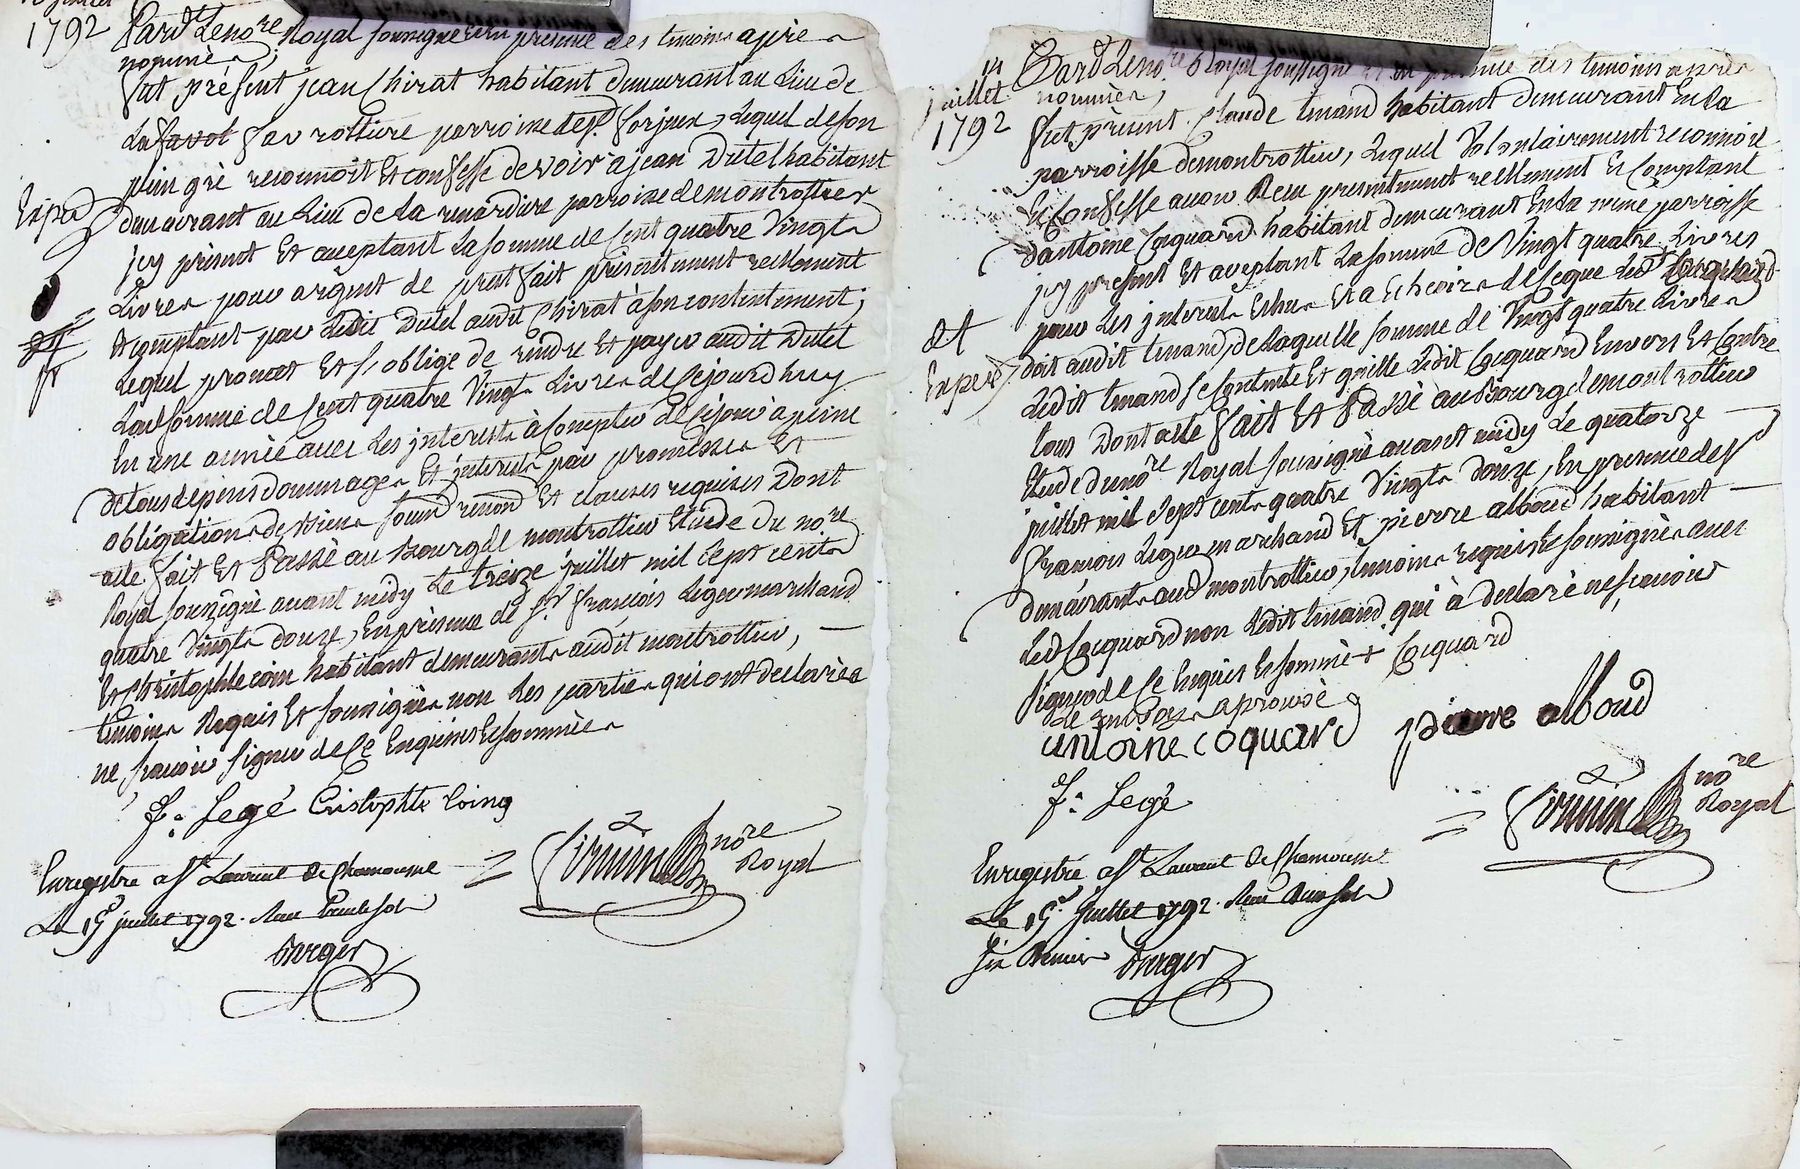 1792
Pard. Le no.re Royal soussigné et en presence des temoins après
nommés,
Fut présent jean Chirat habitant demeurant au Lieu de
La favrottiere parroisse de St. forjeux, Lequel de son
plein gré reconnoit Et confesse devoir à jean Dutel habitant
Exped
demeurant au Lieu de La renardiere parroisse de montrottier
jcy présent Et aceptant La somme de Cent quatre Vingt
Livres pour argent de prest fait présentement reellement
Et comptant par Ledit Dutel audit Chirat à son contentement;
Lequel promet Et s'oblige de rendre Et payer audit Dutel
Lad. somme de Cent quatre Vingt Livres de cejourd'huy
En une année avec Les jnterests à Compter de cejour à peine
de tous depens dommages Et jnterests par promesses Et
obligations de biens soumd. renond. Et clauses requises Dont
acte. fait Et Passé au Bourg de montrottier Etude du no.re
Royal soussigné avant midy Le treize juillet mil sept cent
quatre Vingt douze, En présence de Sr. françois Leger marchand
Et Christophle coin habitant demeurants audit montrottier,
temoins Requis Et soussignés non Les parties qui ont declarées
ne sçavoir signer de Ce Enquises Et sommées
f: Legé Cristophle Coing
no.re
Royal
Enregistré a St. Laurent de Chamousset
Le 15 juillet 1792. Reçu trente sols
Berger
14
juillet
1792
Pard. Le no.re Royal soussigné Et en presence des temoins après
nommés,
Fut présent Claude timand habitant demeurant En La
parroisse de montrottier, Lequel Volontairement reconnoit
Et Confesse avoir Reçu presentement reellement Et Comptant
d'antoine Coquard habitant demeurant En La même parroisse
jcy present Et aceptant La somme de Vingt quatre Livres
pour Les jnterests Echus Et a Echeoir de Ce que Led. Coquard
dt
Exped
doit audit timand, de Laquelle somme de Vingt quatre Livres
Ledit timand se Contente Et quitte Ledit Cocquard Envers Et Contre
tous Dont acte Fait Et Passé au Bourg de montrottier
Etude du no.re Royal soussigné avant midy Le quatorze
juillet mil sept cent quatre Vingt douze, En presence de Sr
François Leger marchand Et pierre alboud habitant
demeurants aud montrottier, temoins requis Et soussignés avec
Led Cocquard non Ledit timand qui à declaré ne sçavoir
signer de Ce Enquis Et sommé + Cocquard
Le renvoy aprouvé
antoine coquard pierre alboud
f: Legé
no.re
Royal
Enregistré a St. Laurent de Chamousset
Le 15. juillet 1792. Reçu
six deniers Berger